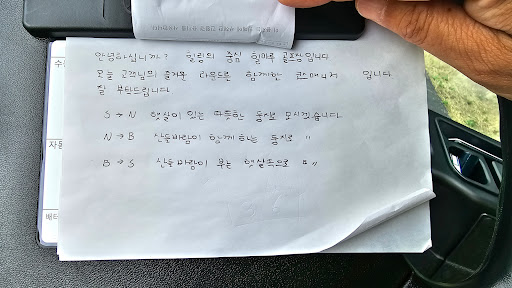 안녕하십니까? 힐링의 중심 힐마루 골프장입니다
오늘 고객님의 즐거운 라운드를 함께한 코스매니저 입니다
잘 부탁드립니다
S → N 햇살이 있는 따뜻한 둥지로 모시겠습니다
N → B 산들바람이 함께하는 둥지로 〃
B → S 산들바람이 부는 햇살속으로 〃
수
자동
배터